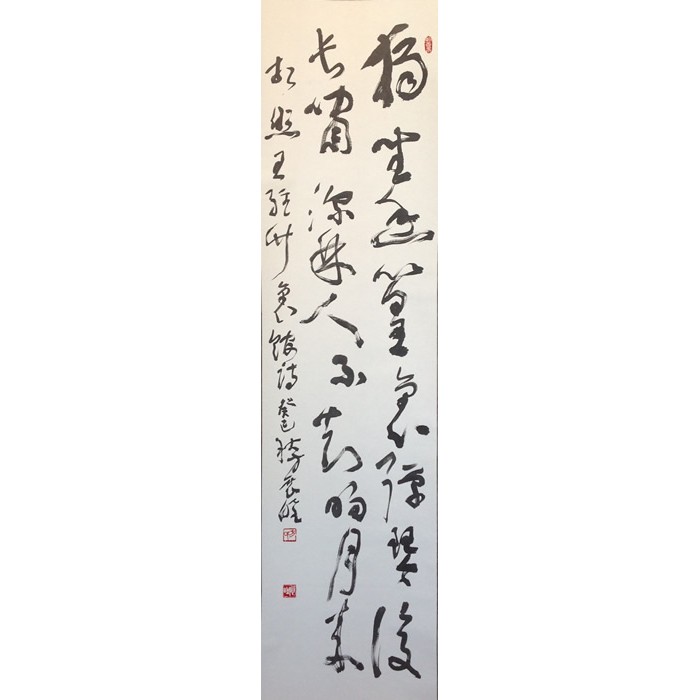 獨坐幽篁裏彈琴復
長嘯深林人不知明月來
相照王維竹裏館詩癸巳